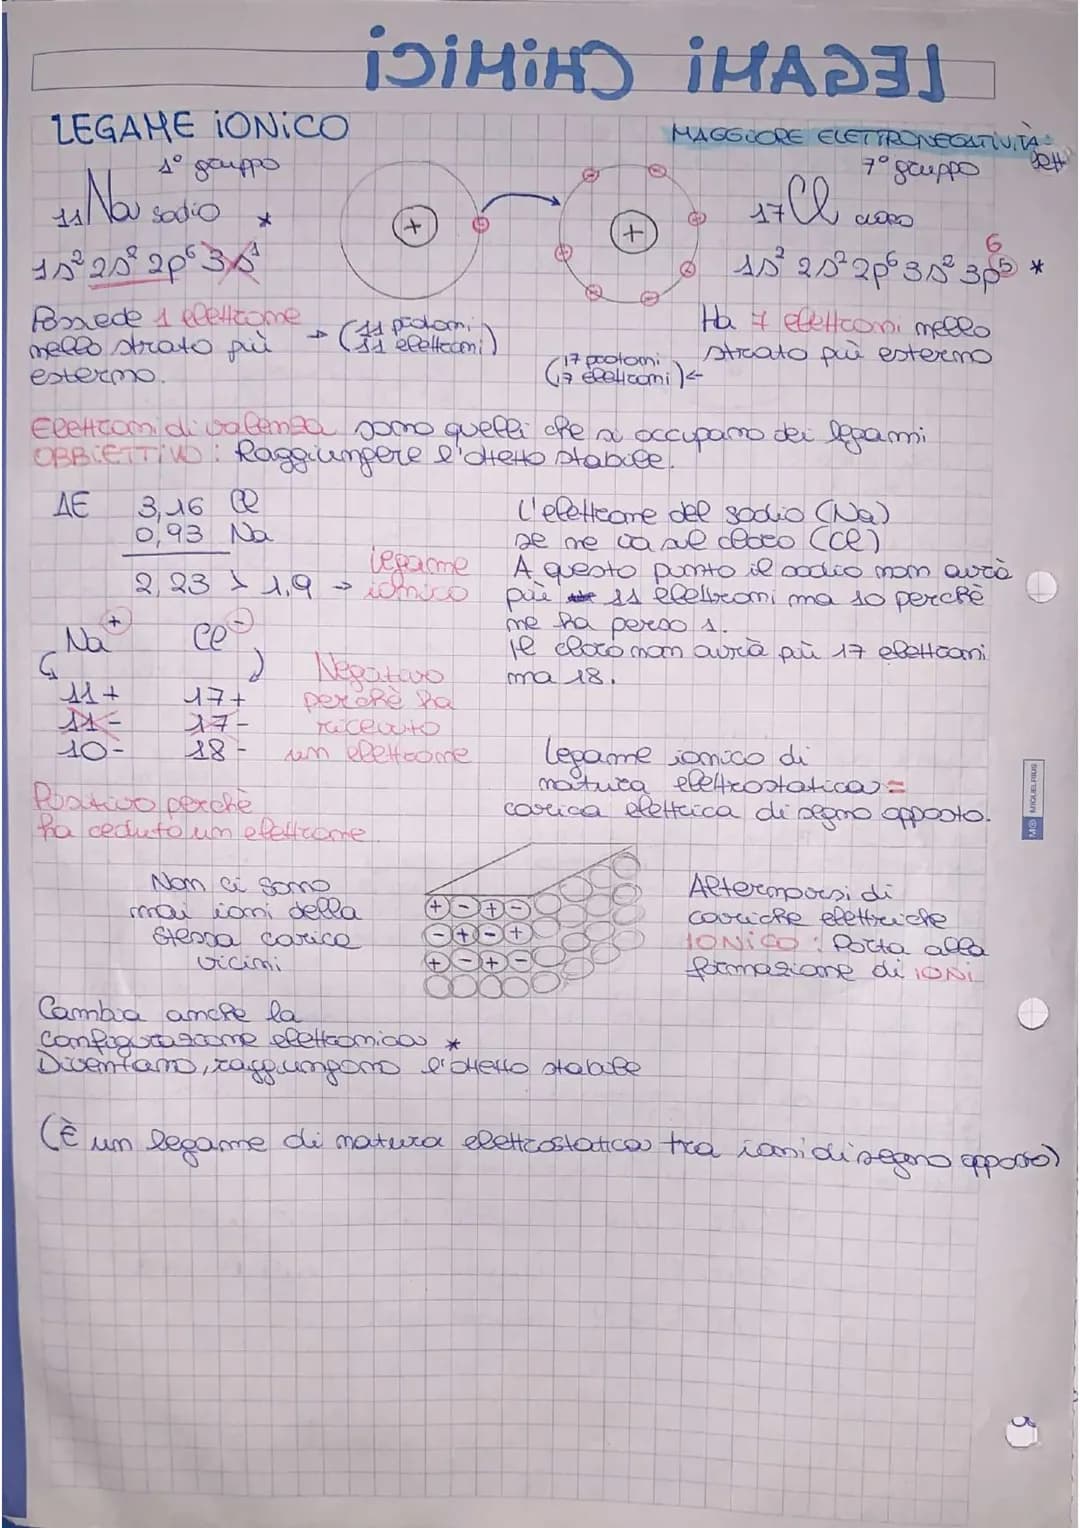 LEGAMI CHIMICI
LEGAME IONICO
MAGGIORE ELETTRONEGATIVITÀ
1° gruppo
7° gruppo
11Na sodio *
17Cl cloro
1s² 2s² 2p⁶ 3s¹
6
1s² 2s² 2p⁶ 3s² 3p⁵ *
Possede 1 elettrone
nello strato più
esterno.
→ (11 protoni
11 elettroni)
Ha 7 elettroni nello
strato più esterno
(17 protoni
17 elettroni) ←
Elettroni di valenza sono quelli che si occupano dei legami
OBBIETTIVO: Raggiungere l'ottetto stabile.
ΔE 3,16 Cl
0,93 Na
2,23 > 1,9 → legame
ionico
L'elettrone del sodio (Na)
se ne va sul cloro (Cl)
A questo punto il sodio non avrà
più 11 elettroni ma 10 perchè
ne ha perso 1.
Il cloro non avrà più 17 elettroni
ma 18.
Na⁺ Cl⁻
11+ 17+
11- 17-
10- 18-
Negativo
perchè ha
ricevuto
un elettrone
Positivo perchè
ha ceduto un elettrone.
Legame ionico di
natura elettrostatica =
carica elettrica di segno opposto.
M MIQUELRIUS
Non ci sono
mai ioni della
stessa carica
vicini
+ - + -
- + - +
+ - + -
Alternarsi di
cariche elettriche
IONICO: Porta alla
formazione di IONI
Cambia anche la
configurazione elettronica *
Diventano, raggiungono l'ottetto stabile
(È un legame di natura elettrostatica tra ioni di segno opposto)